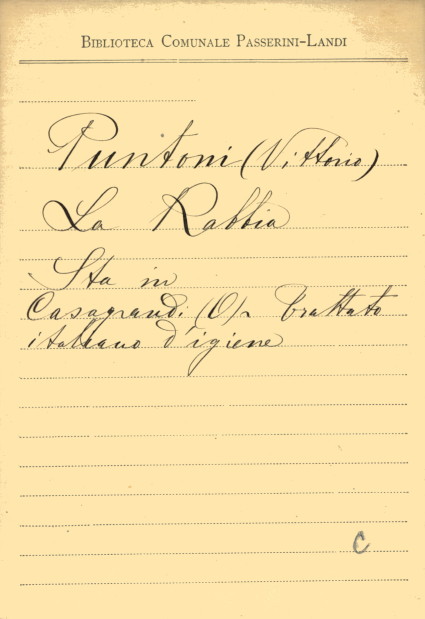 BIBLIOTECA COMUNALE PASSERINI-LANDI
Puntoni (Vittorio)
La Rabbia
Sta in
Casagrandi (O)r Trattato
italiano d'igiene
C